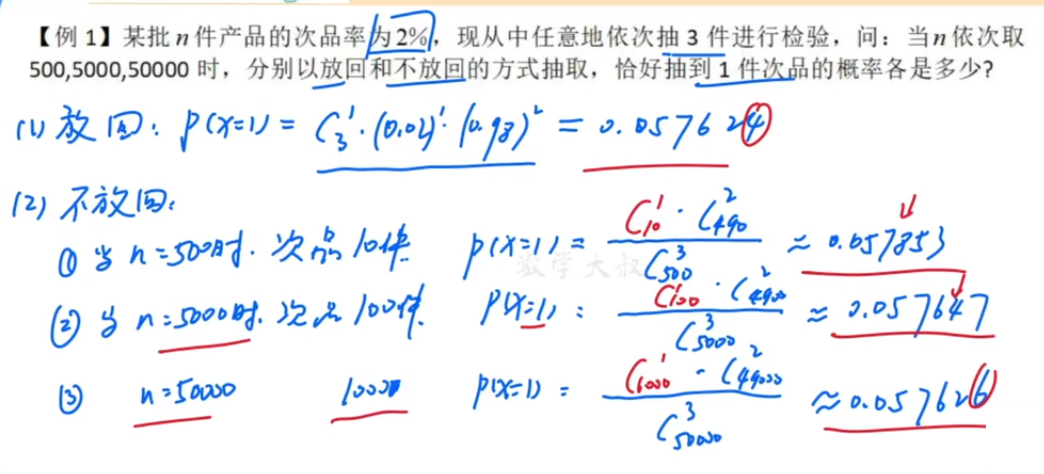 【例 1】某批 n 件产品的次品率为 2%，现从中任意地依次抽 3 件进行检验，问：当 n 依次取
500,5000,50000 时，分别以放回和不放回的方式抽取，恰好抽到 1 件次品的概率各是多少?
(1) 放回: P(X=1) = C₃¹·(0.02)¹·(0.98)² = 0.057624
(2) 不放回:
① 当 n=500时. 次品 10件 P(X=1) = C₁₀¹·C₄₉₀² / C₅₀₀³ ≈ 0.057853
数学大叔
② 当 n=5000时. 次品 100件. P(X=1) = C₁₀₀¹·C₄₉₀₀² / C₅₀₀₀³ ≈ 0.057647
③ n=50000 1000 P(X=1) = C₁₀₀₀¹·C₄₉₀₀₀² / C₅₀₀₀₀³ ≈ 0.057626